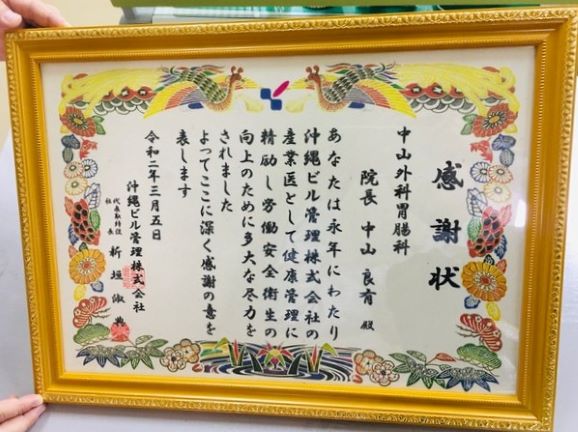 感謝状
中山外科胃腸科
院長 中山 良有 殿
あなたは永年にわたり
沖縄ビル管理株式会社の
産業医として健康管理に
精励し労働安全衛生の
向上のために多大な尽力を
されました
よってここに深く感謝の意を
表します
令和二年三月五日
沖縄ビル管理株式会社
代表取締役社長 新垣淑典